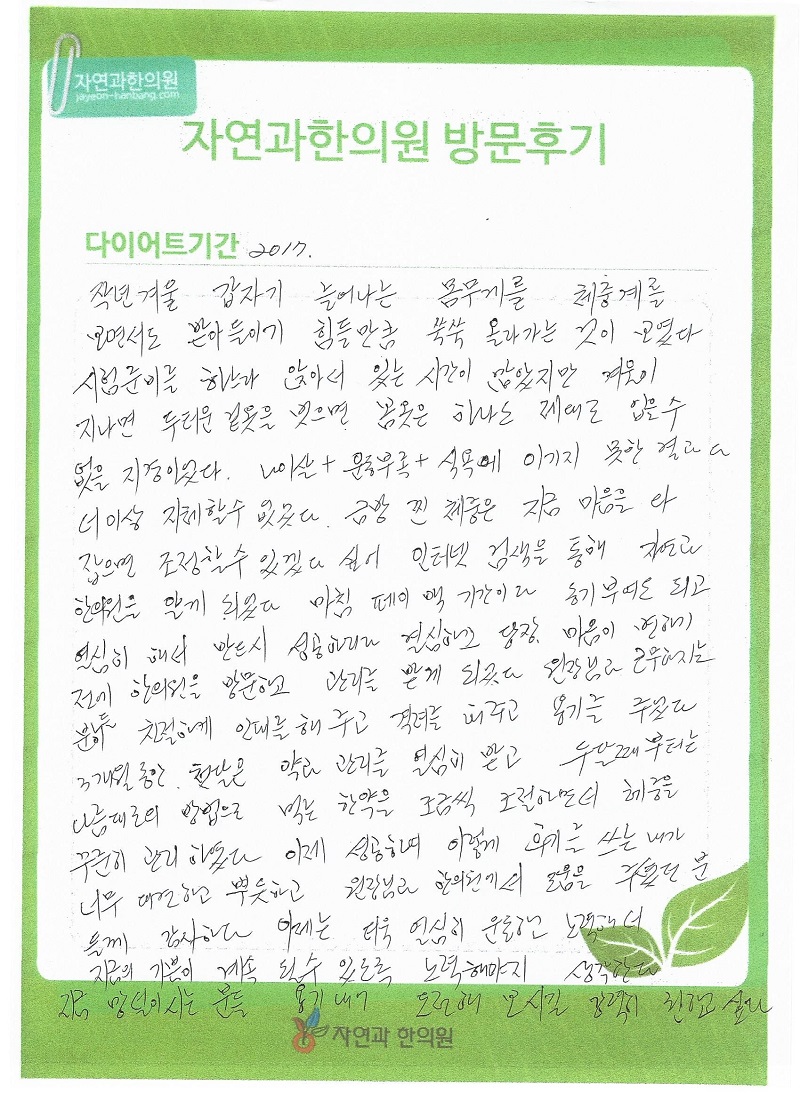 자연과한의원
jayeon-hanbang.com
자연과한의원 방문후기
다이어트기간 2017.
작년겨울 갑자기 늘어나는 몸무게를 체중계를
보면서도 받아들이기 힘들만큼 쑥쑥 올라가는 것이 보였다
시험준비를 하느라 앉아서 있는 시간이 많았지만 겨울이
지나면 두터운 겉옷을 벗으면 봄옷은 하나도 제대로 입을수
없을 지경이었다. 나이살+운동부족+식욕에 이기지 못한 결과다
더이상 지체할수 없었다. 금방 찐 체중은 지금 마음을 다
잡으면 조정할수 있겠다 싶어 인터넷 검색을 통해 자연과
한의원을 알게 되었다 마침 페이백 기간이라 동기부여도 되고
열심히 해서 반드시 성공하리라 결심하고 당장 마음이 변하기
전에 한의원을 방문하고 관리를 받게 되었다 원장님과 근무하시는
분들이 친절하게 안내를 해 주고 격려를 해주고 용기를 주었다
3개월동안 첫달은 약과 관리를 열심히 받고 두달째부터는
나름대로의 방법으로 먹는 한약을 조금씩 조절하면서 체중을
꾸준히 관리 하였다 이제 성공하여 이렇게 후기를 쓰는 내가
너무 대견하고 뿌듯하고 원장님과 한의원에서 도움을 주셨던 분
들께 감사하다 이제는 더욱 열심히 운동하고 노력해서
지금의 기분이 계속 될수 있도록 노력해야지 생각한다
지금 망설이시는 분들 용기내어 도전해 보시길 강력히 권하고 싶다
자연과 한의원